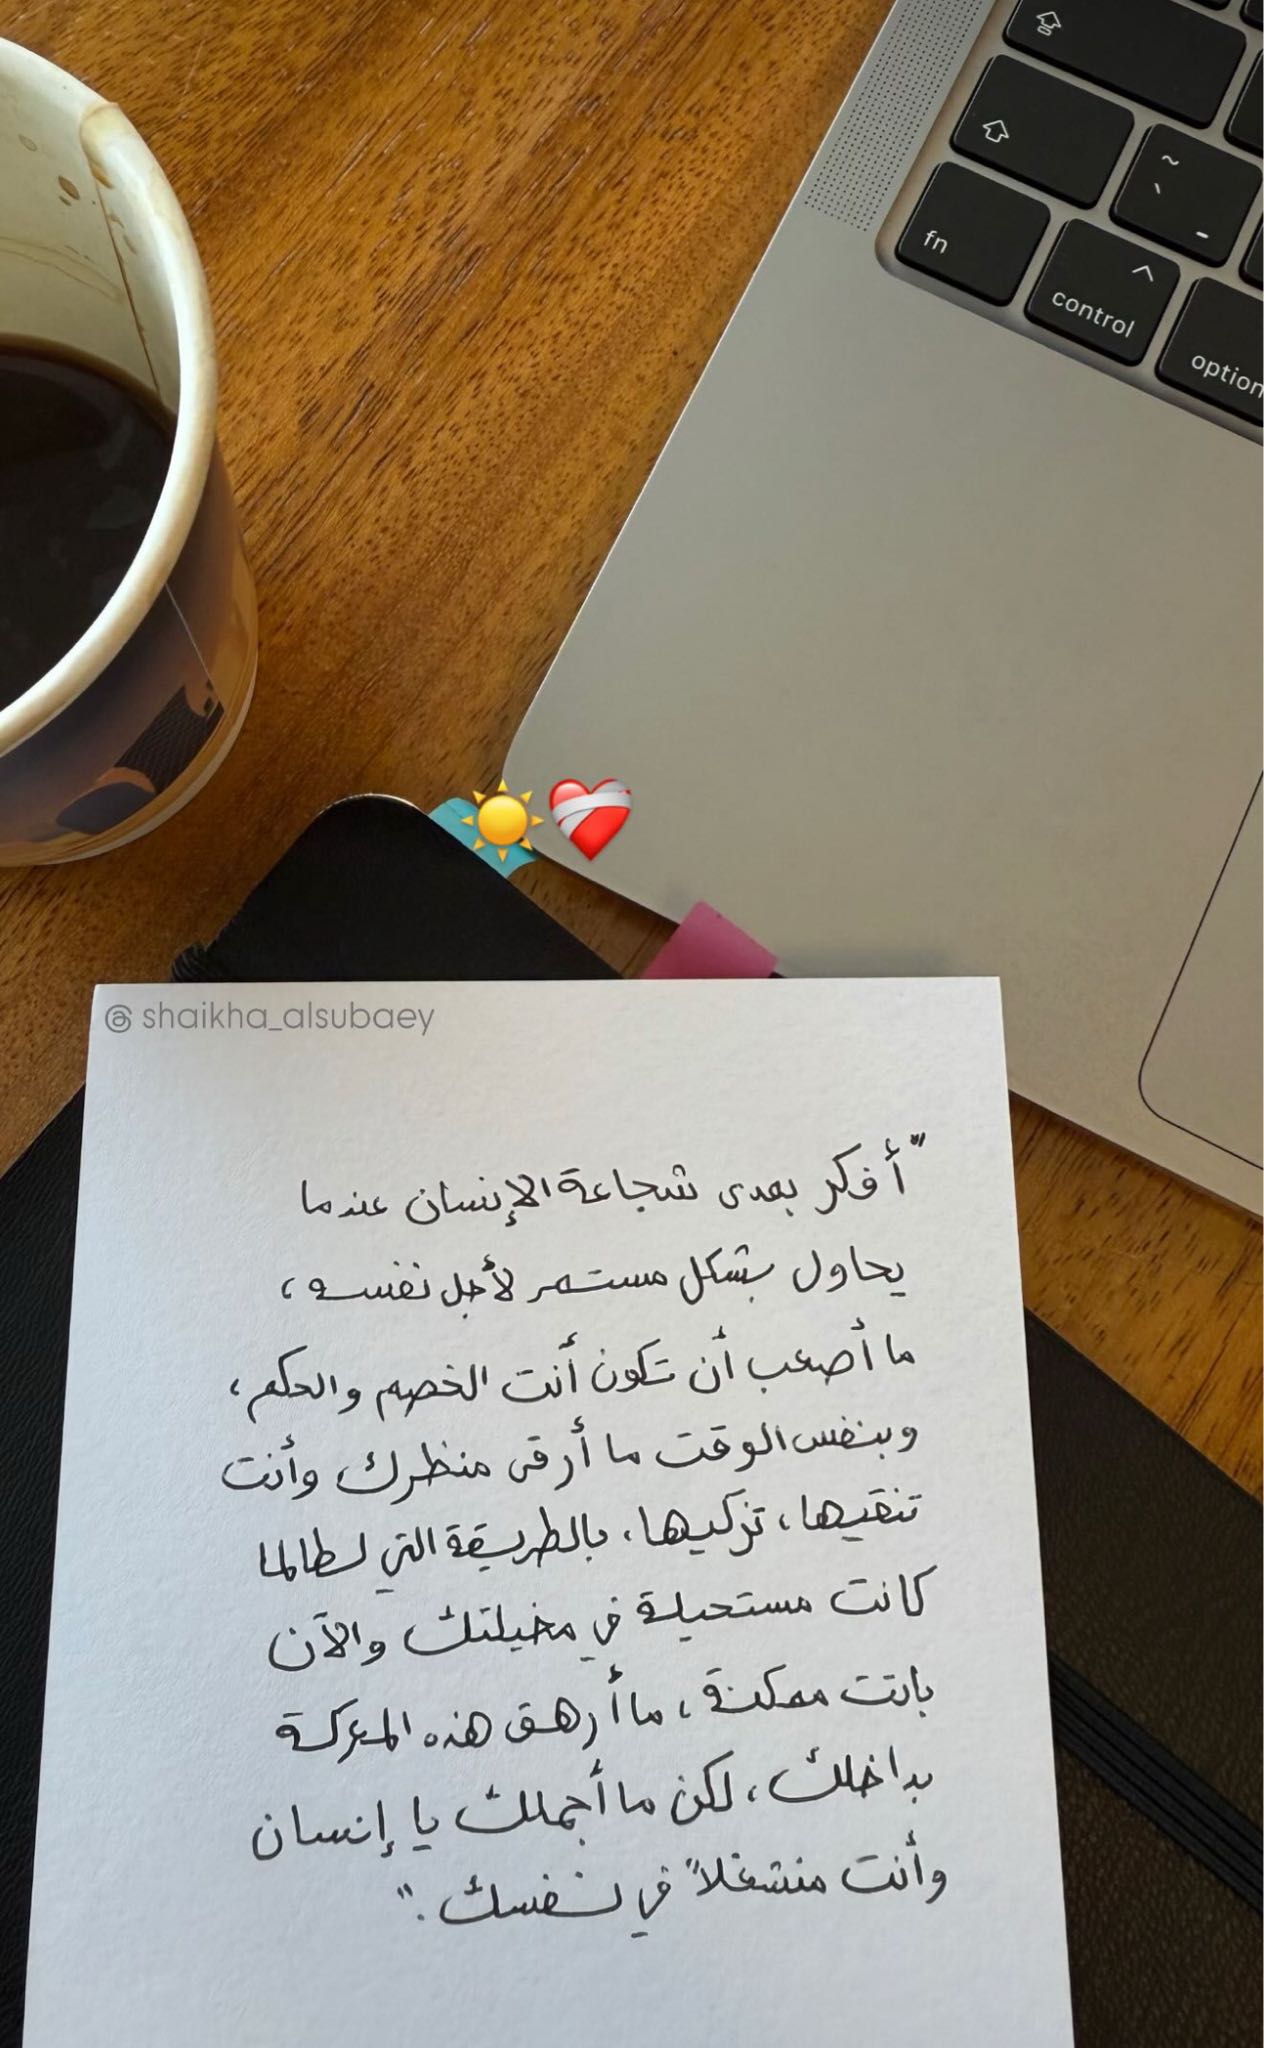 ⇪
⇧
~
`
-
fn
^
control
option
shaikha_alsubaey
"أفكر بمدى شجاعة الإنسان عندما
يحاول بشكل مستمر لأجل نفسه،
ما أصعب أن تكون أنت الخصم والحكم،
وبنفس الوقت ما أرقى منظرك وأنت
تنقيها، تزكيها، بالطريقة التي لطالما
كانت مستحيلة في مخيلتك والآن
باتت ممكنة، ما أرهق هذه المعركة
بداخلك، لكن ما أجملك يا إنسان
وأنت منشغلاً في نفسك."